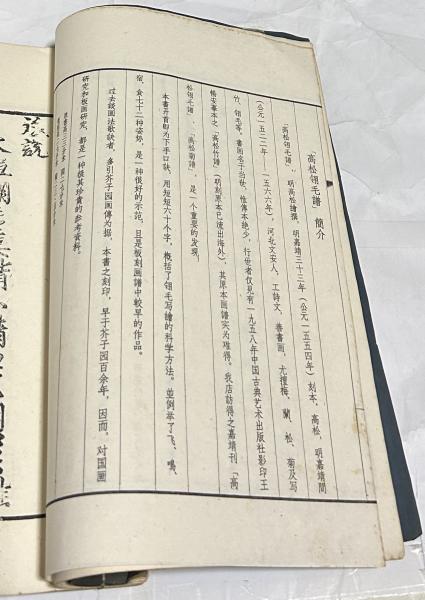 「高松翎毛譜」簡介
「高松翎毛谱」，明高松繪撰，明嘉靖三十三年（公元一五五四年）刻本，高松，明嘉靖間
（公元一五二二年——一五六六年），河北文安人，工詩文，善書画，尤擅梅、蘭、松、菊及写
竹、翎毛等，書画名于当世，惟傳本绝少，行世者仅見有一九五八年中国古典艺术出版社影印王
暢安摹本之「高松竹譜」（明刻原本已流出海外），其原本画譜实为难得。我店訪得之嘉靖刊「高
松翎毛譜」、「高松菊譜」，是一个重要的发現。
本書开首即为下手口訣，用短短六十个字，概括了翎毛写繪的科学方法。並例举了飞、鳴、
宿、食七十二种姿勢，是一种很好的示范，且是板刻画譜中較早的作品。
过去談画法歌訣者，多引芥子园画傳为据，本書之刻印，早于芥子园百余年，因而，对国画
研究和板画研究，都是一种极其珍贵的参考資料。
說